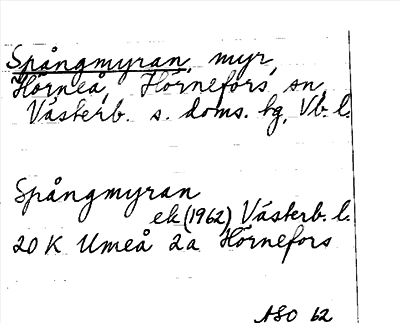 Spångmyran, myr,
Hörneå, Hörnefors sn,
Västerb. s. doms. hg, Vb. l.
Spångmyran
ek (1962) Västerb. l.
20 K Umeå 2a Hörnefors
ASO 62